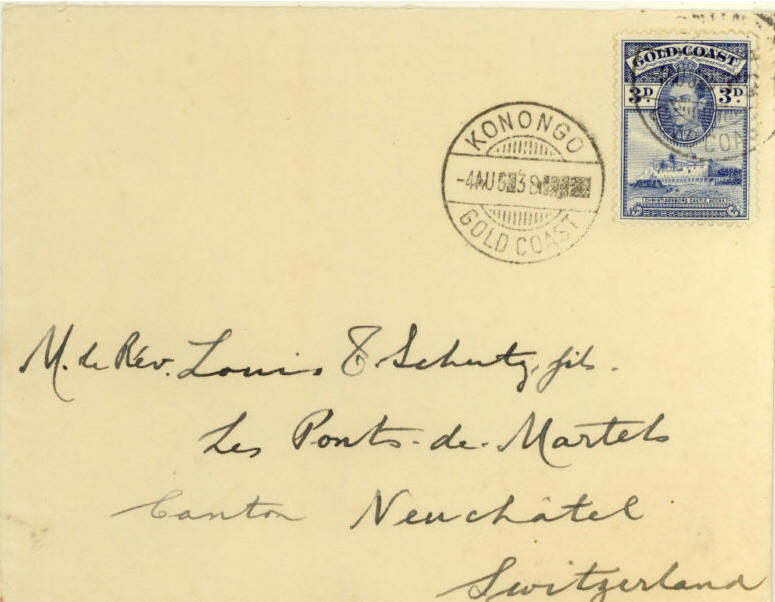 GOLD COAST
3D. 3D.
CHRISTIANSBORG CASTLE, ACCRA
KONONGO
-4AU 38
GOLD COAST
COAS
M. le Rév. Louis E Schutz, fils.
Les Ponts-de-Martels
Canton Neuchâtel
Switzerland